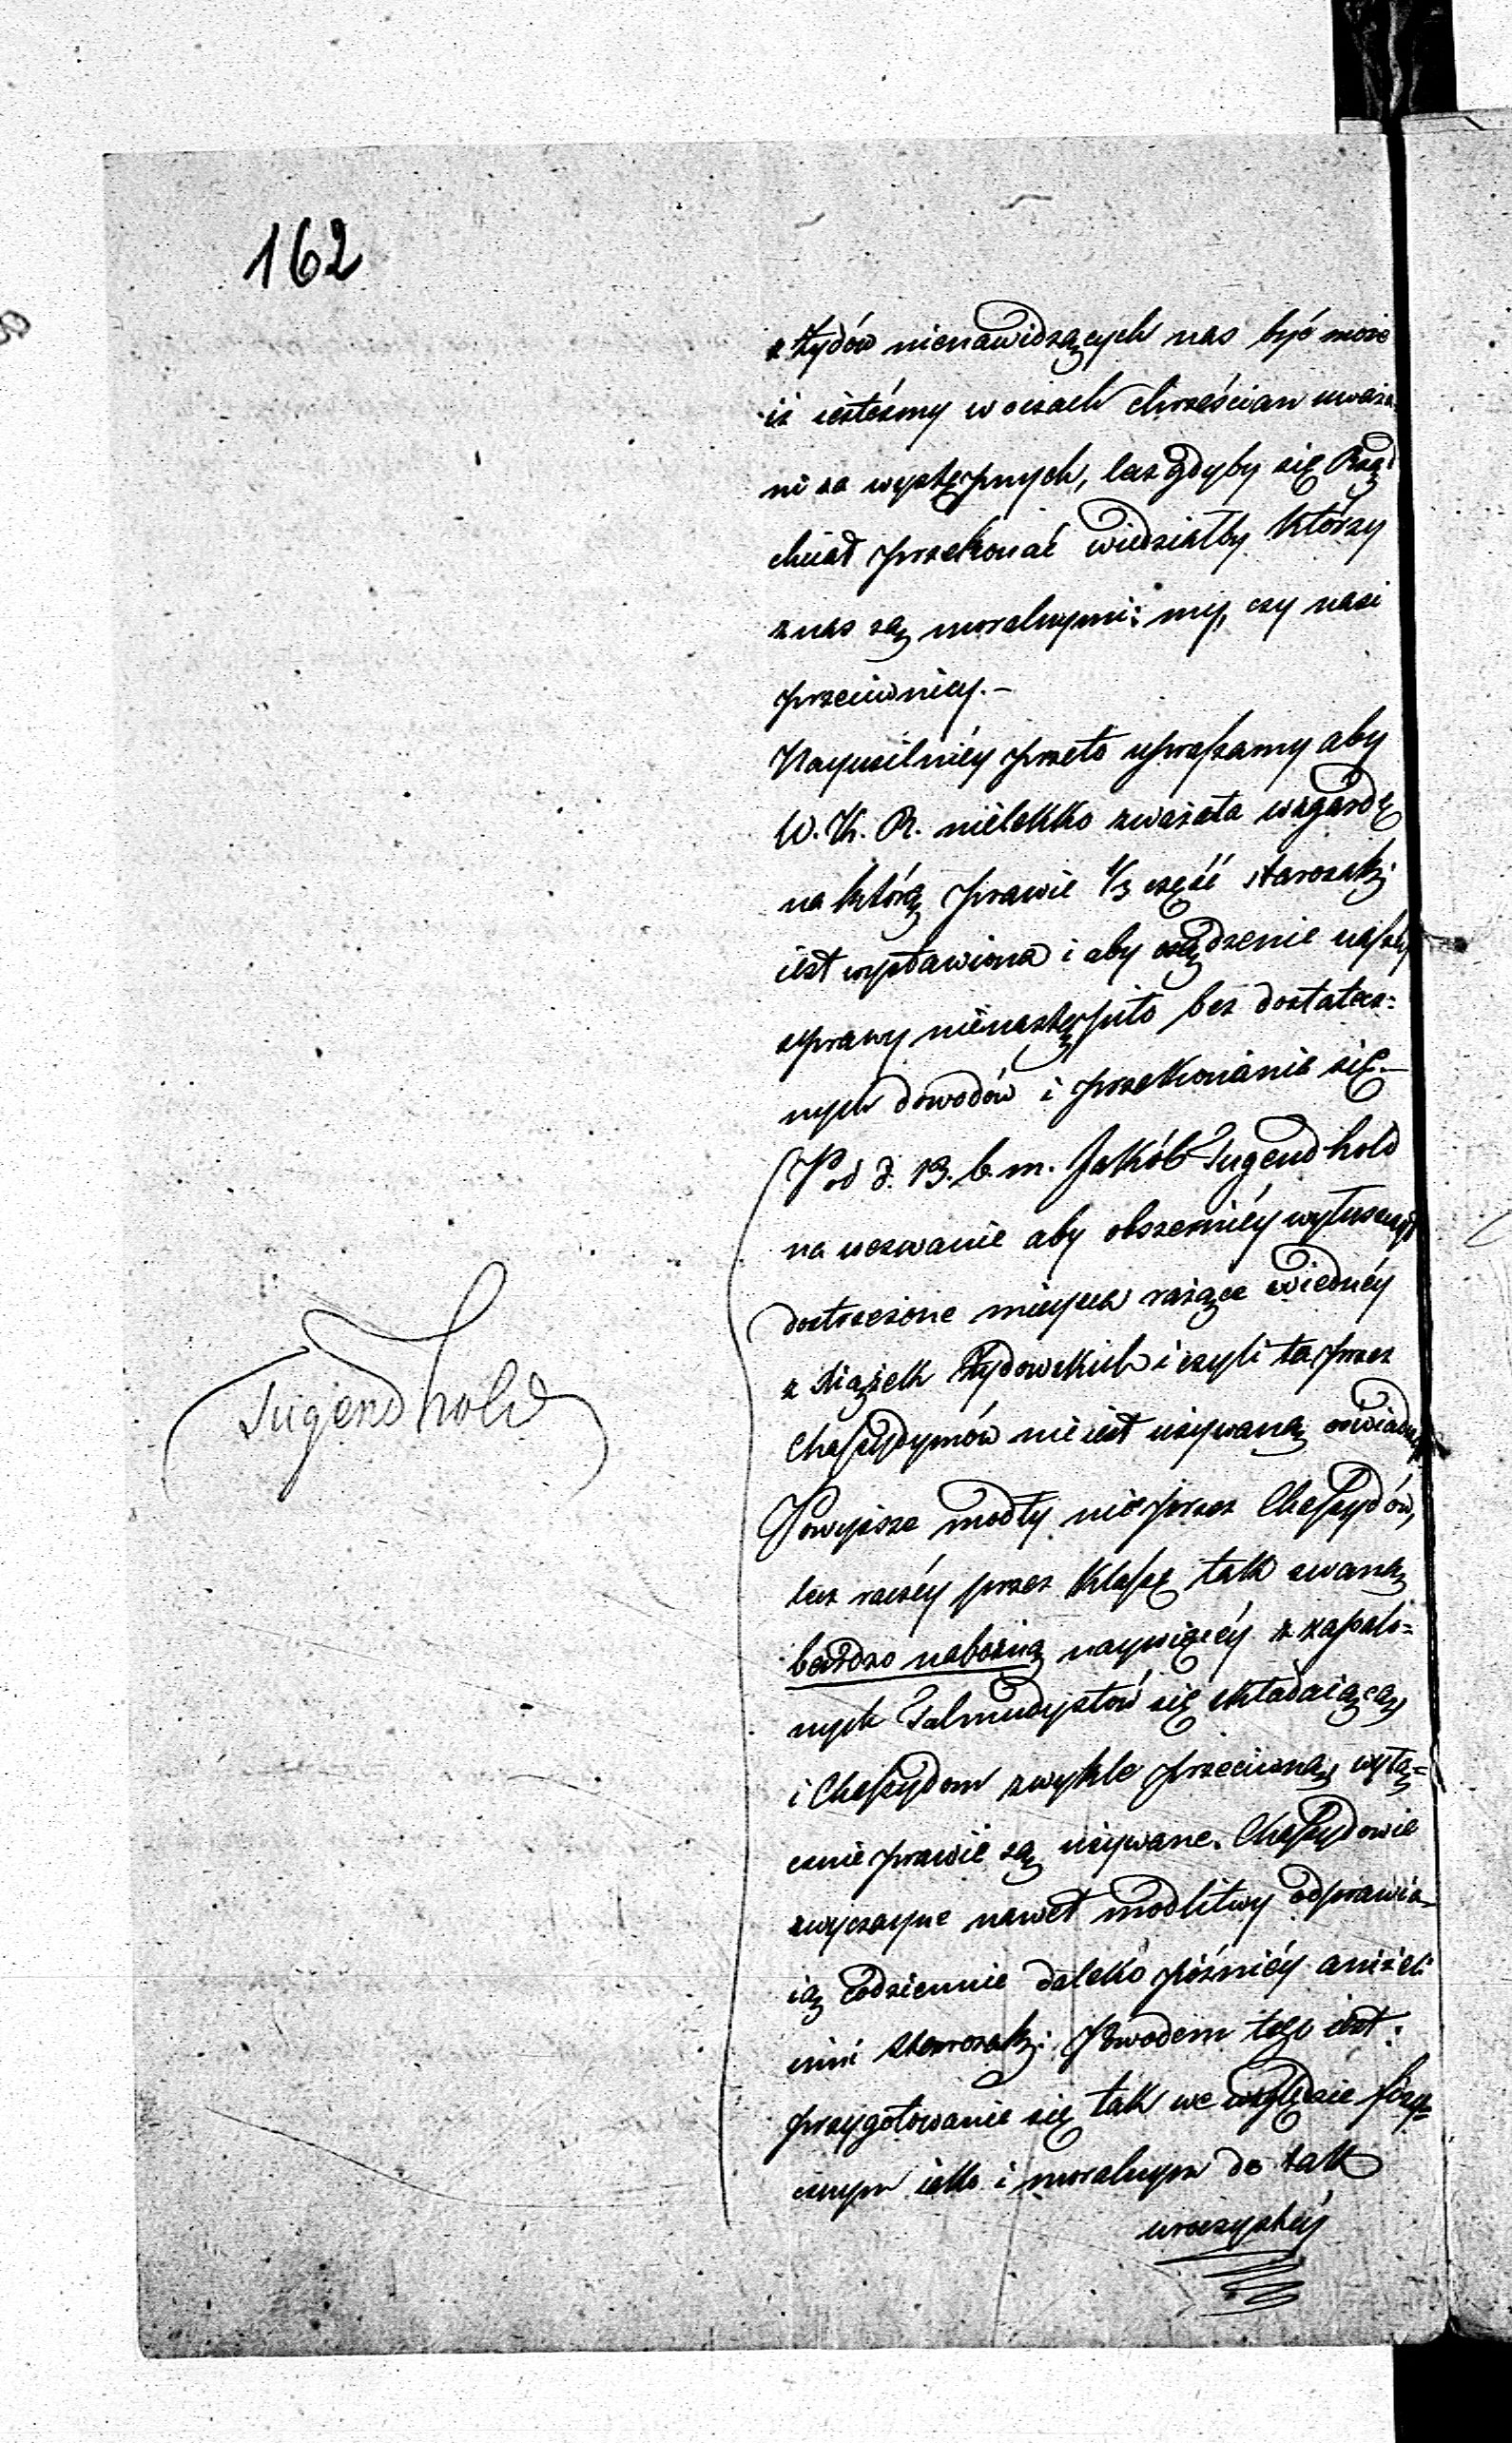 162
z Żydów nienawidzących nas być może
iż iesteśmy w oczach chrześcian uważa
ni za występnych, lecz gdyby się Rząd
chciał przekonać widziałby którzy
z nas są moralnymi: my, czy nasi
przeciwnicy.—
Nayusilniéy przeto upraszamy aby
W. K. R. nielekko zważała wzgardę
na którą prawie 1/3 część starozak:
iest wystawiona i aby osądzenie naszéy
sprawy nienastąpiło bez dostatecz=
nych dowodów i przekonania się.—
Pod d. 13. b. m. Jakób Tugendhold
na wezwanie aby obszerniéy wytłuszczył
dostrzeżone mieysca rażące w iednéy
z Xiążek Żydowskich i czyli ta przez
Chassydymów nie iest używaną oświadczył
Tugendhold
Powyższe modły nie przez Chassydów,
lecz raczéy przez Klassę tak zwaną
bardzo nabożną naywięcéy z zapalo=
nych Talmudystów się składaiącą,
i Chassydom zwykle przeciwną, wyłą=
cznie prawie są używane. Chassydowie
zwyczayne nawet modlitwy odprawia=
ią codziennie daleko późniéy aniżeli
inni Starozak: Powodem tego iest:
przygotowanie się tak we względzie fizy=
cznym iako i moralnym do tak
uroczystéy